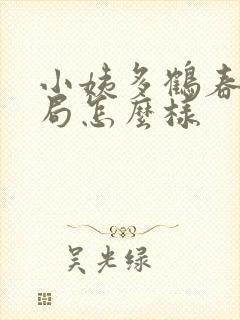 小姨多鹤春
局怎麼樣
吴光绿